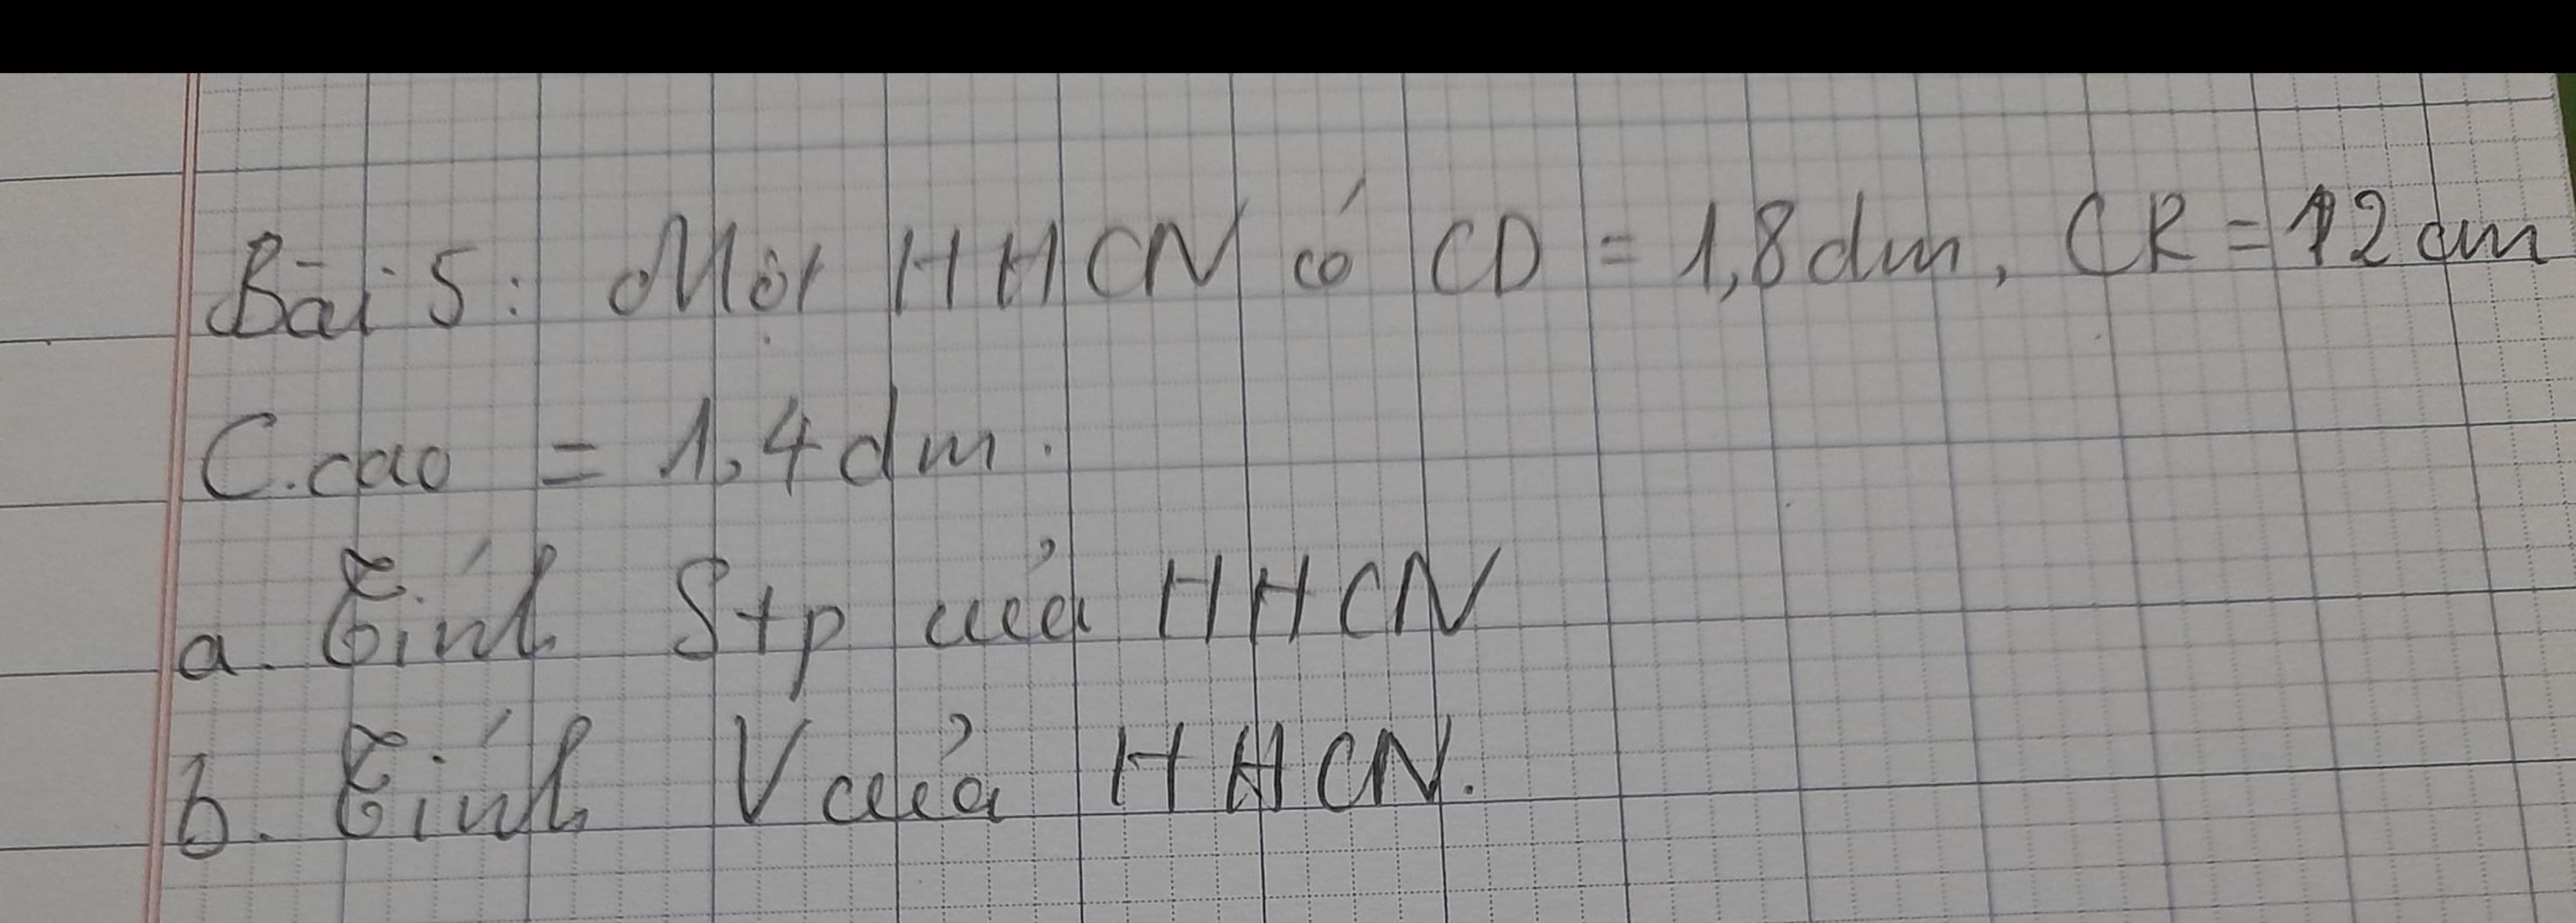 Bài 5: Một HHCN có CD = 1,8dm, CR = 12cm
C.cao = 1,4dm.
a. Tính Stp của HHCN
b. Tính V của HHCN.